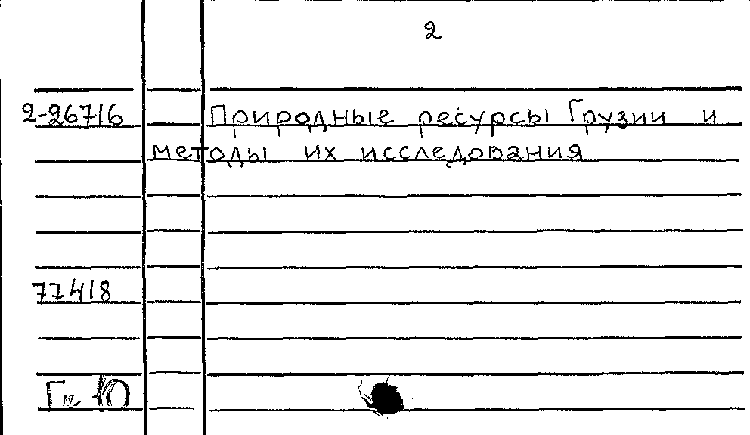 2
2-26716 Природные ресурсы Грузии и
методы их исследования
77418